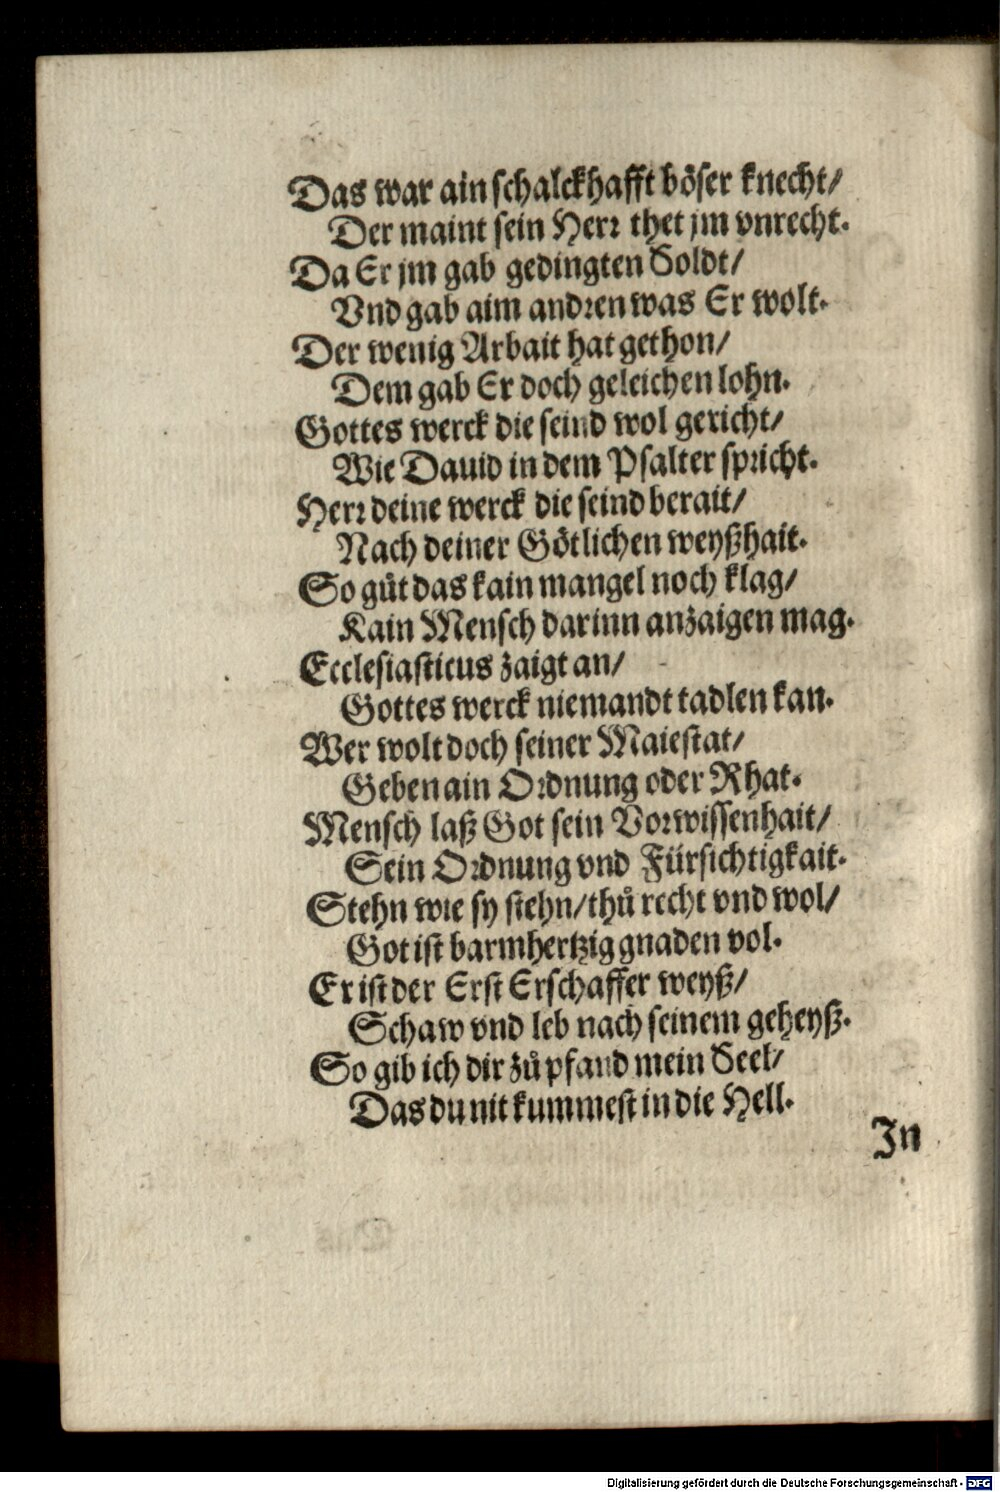 Das war ain schalckhafft böser knecht/
Der maint sein Herr thet jm vnrecht.
Da Er jm gab gedingten Soldt/
Vnd gab aim andren was Er wolt.
Der wenig Arbait hat gethon/
Dem gab Er doch geleichen lohn.
Gottes werck die seind wol gericht/
Wie Dauid in dem Psalter spricht.
Herr deine werck die seind berait/
Nach deiner Götlichen weyßhait.
So gůt das kain mangel noch klag/
Kain Mensch darinn anzaigen mag.
Ecclesiasticus zaigt an/
Gottes werck niemandt tadlen kan.
Wer wolt doch seiner Maiestat/
Geben ain Ordnung oder Rhat.
Mensch laß Got sein Vorwissenhait/
Sein Ordnung vnd Fürsichtigkait.
Stehn wie sy stehn/thů recht vnd wol/
Got ist barmhertzig gnaden vol.
Er ist der Erst Erschaffer weyß/
Schaw vnd leb nach seinem geheyß.
So gib ich dir zů pfand mein Seel/
Das du nit kummest in die Hell.
In
Digitalisierung gefördert durch die Deutsche Forschungsgemeinschaft - DFG